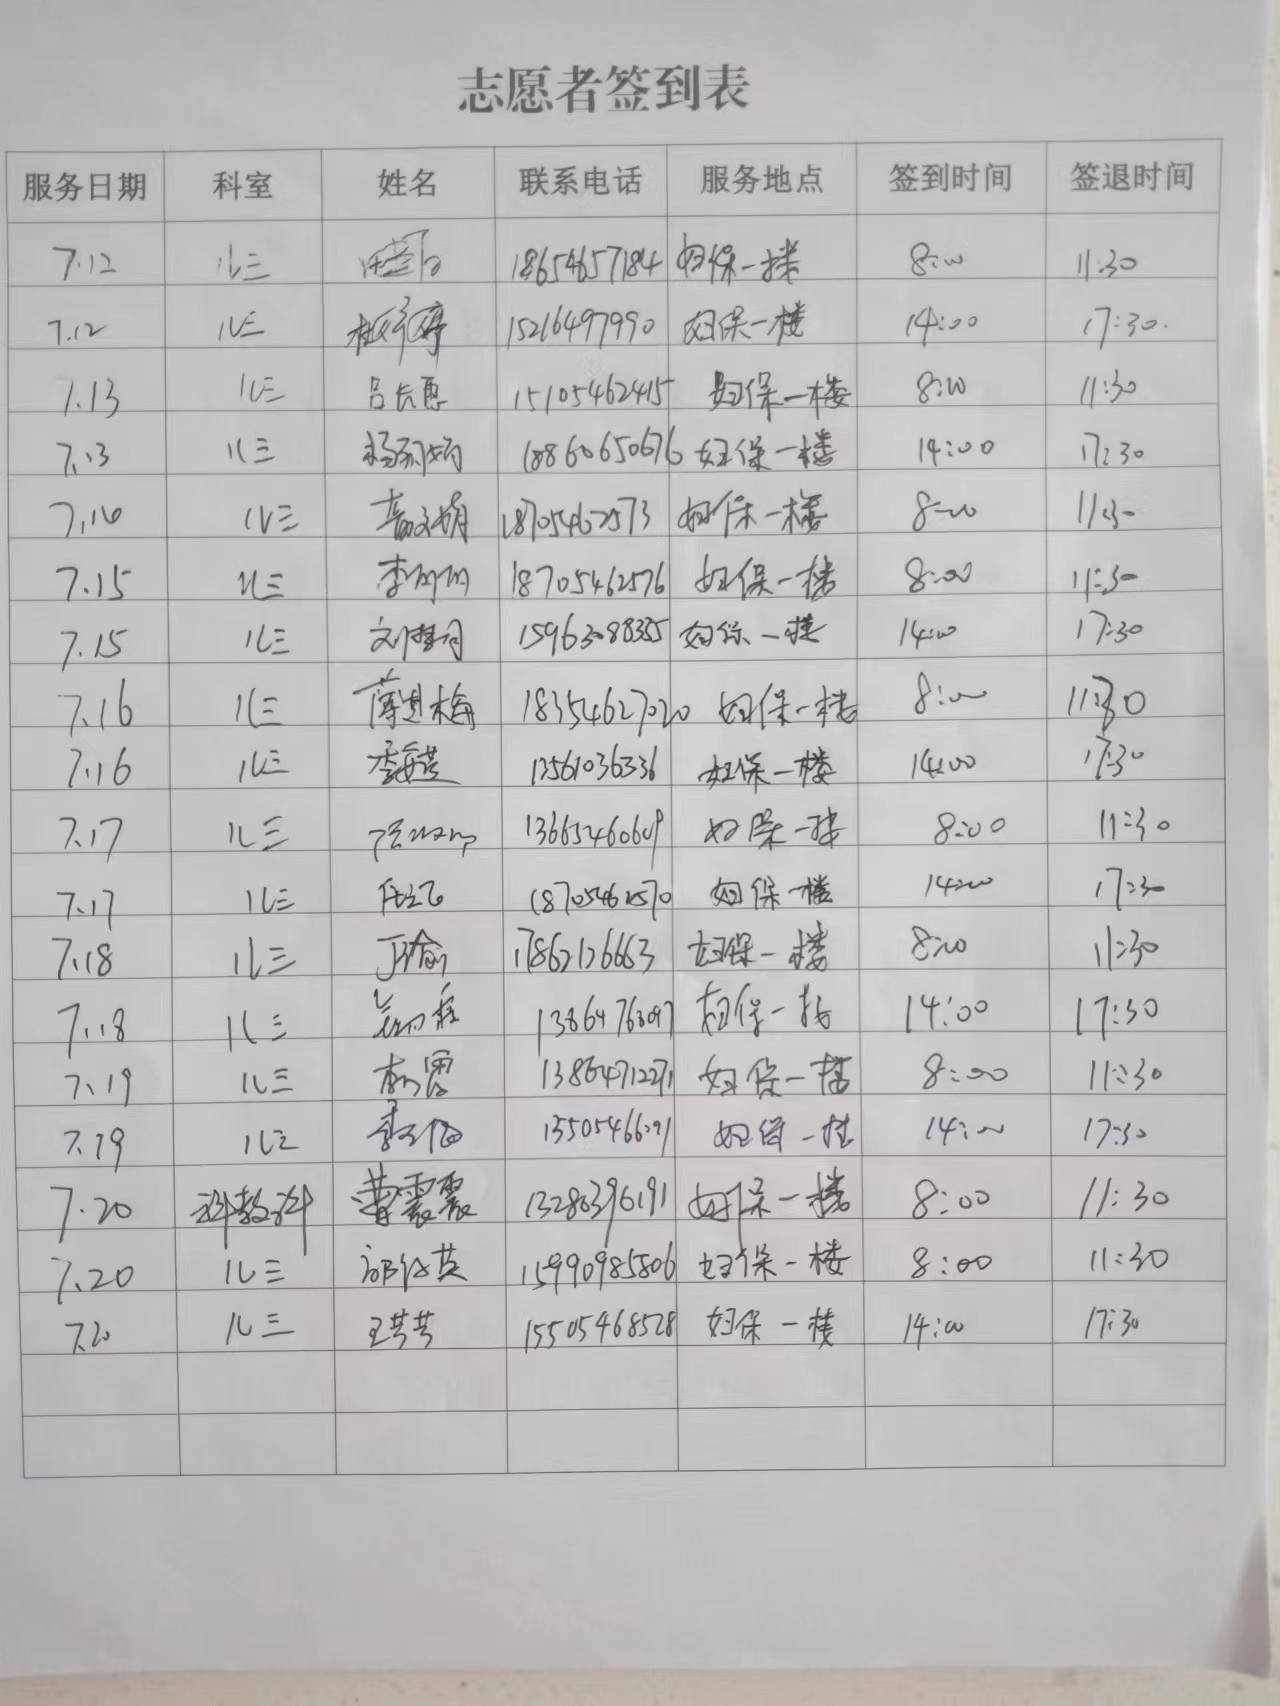 志愿者签到表
服务日期 科室 姓名 联系电话 服务地点 签到时间 签退时间
7.12 儿三 18654657184 妇保一楼 8:00 11:30
7.12 儿三 15216497990 妇保一楼 14:00 17:30.
7.13 儿三 吕长惠 15105462415 妇保一楼 8:00 11:30
7.13 儿三 18860650676 妇保一楼 14:00 17:30
7.14 儿三 18705462573 妇保一楼 8:00 11:30
7.15 儿三 李丽丽 18705462576 妇保一楼 8:00 11:30
7.15 儿三 15963088355 妇保一楼 14:00 17:30
7.16 儿三 薄其梅 18354627020 妇保一楼 8:00 11:30
7.16 儿三 13561036336 妇保一楼 14:00 17:30
7.17 儿三 13665460609 妇保一楼 8:00 11:30
7.17 儿三 18705462570 妇保一楼 14:00 17:30
7.18 儿三 17862126663 妇保一楼 8:00 11:30
7.18 儿三 13864763097 妇保一楼 14:00 17:30
7.19 儿三 13864712271 妇保一楼 8:00 11:30
7.19 儿三 妇保一楼 14:00 17:30
7.20 科教科 黄震震 13280396191 妇保一楼 8:00 11:30
7.20 儿三 15990985806 妇保一楼 8:00 11:30
7.20 儿三 王芳芳 15505468528 妇保一楼 14:00 17:30